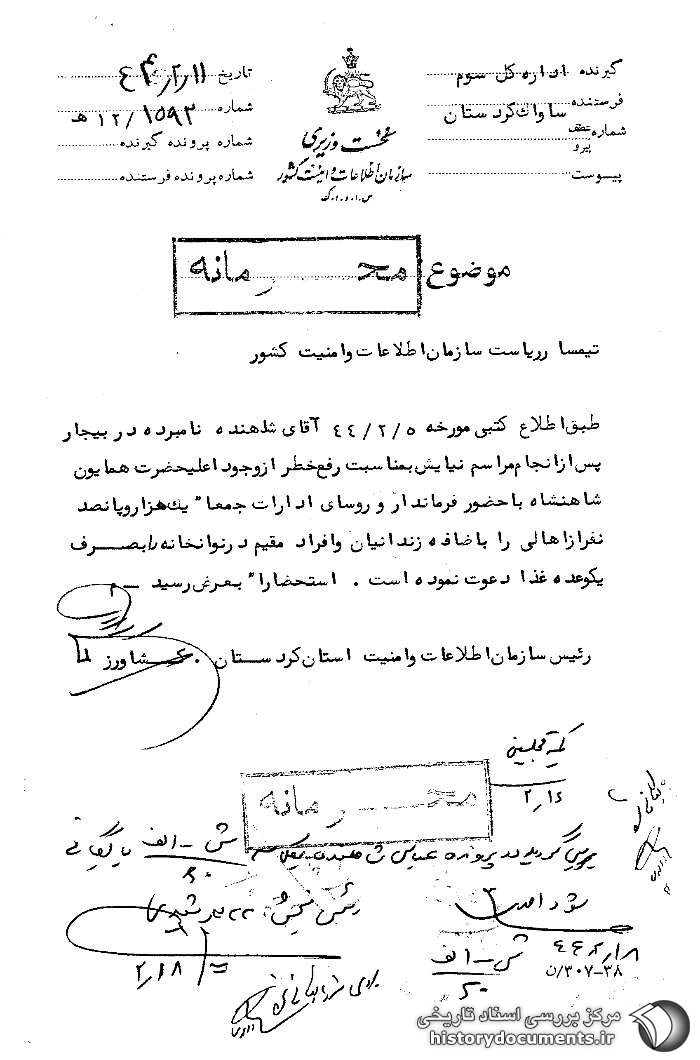 گیرنده اداره کل سوم
فرستنده ساواک کردستان
شماره عطف
پیرو
پیوست
نخست وزیری
سازمان اطلاعات و امنیت کشور
س.ا.و.ا.ک
تاریخ ۴۴/۲/۱۱
شماره ۱۲/۱۵۹۳ ه‍
شماره پرونده گیرنده
شماره پرونده فرستنده
موضوع: محرمانه
تیمسار ریاست سازمان اطلاعات وامنیت کشور
طبق اطلاع کتبی مورخه ۴۴/۲/۵ آقای شاهنده نامبرده در بیجار
پس از انجام مراسم نیایش بمناسبت رفع خطر از وجود اعلیحضرت همایون
شاهنشاه با حضور فرماندار و روسای ادارات جمعا" یک هزار و پانصد
نفر از اهالی را باضافه زندانیان وافراد مقیم در نوانخانه را بصرف
یکوعده غذا دعوت نموده است . استحضارا" بعرض رسید
رئیس سازمان اطلاعات وامنیت استان کردستان . کشاورز
محرمانه
۲/۱۴
ش - الف
رئیس بخش ۳۲۲
۲/۱۸
۴۴/۲/۱۸
ش - الف
۳۰۷-۳۸/ن
مرکز بررسی اسناد تاریخی
historydocuments.ir